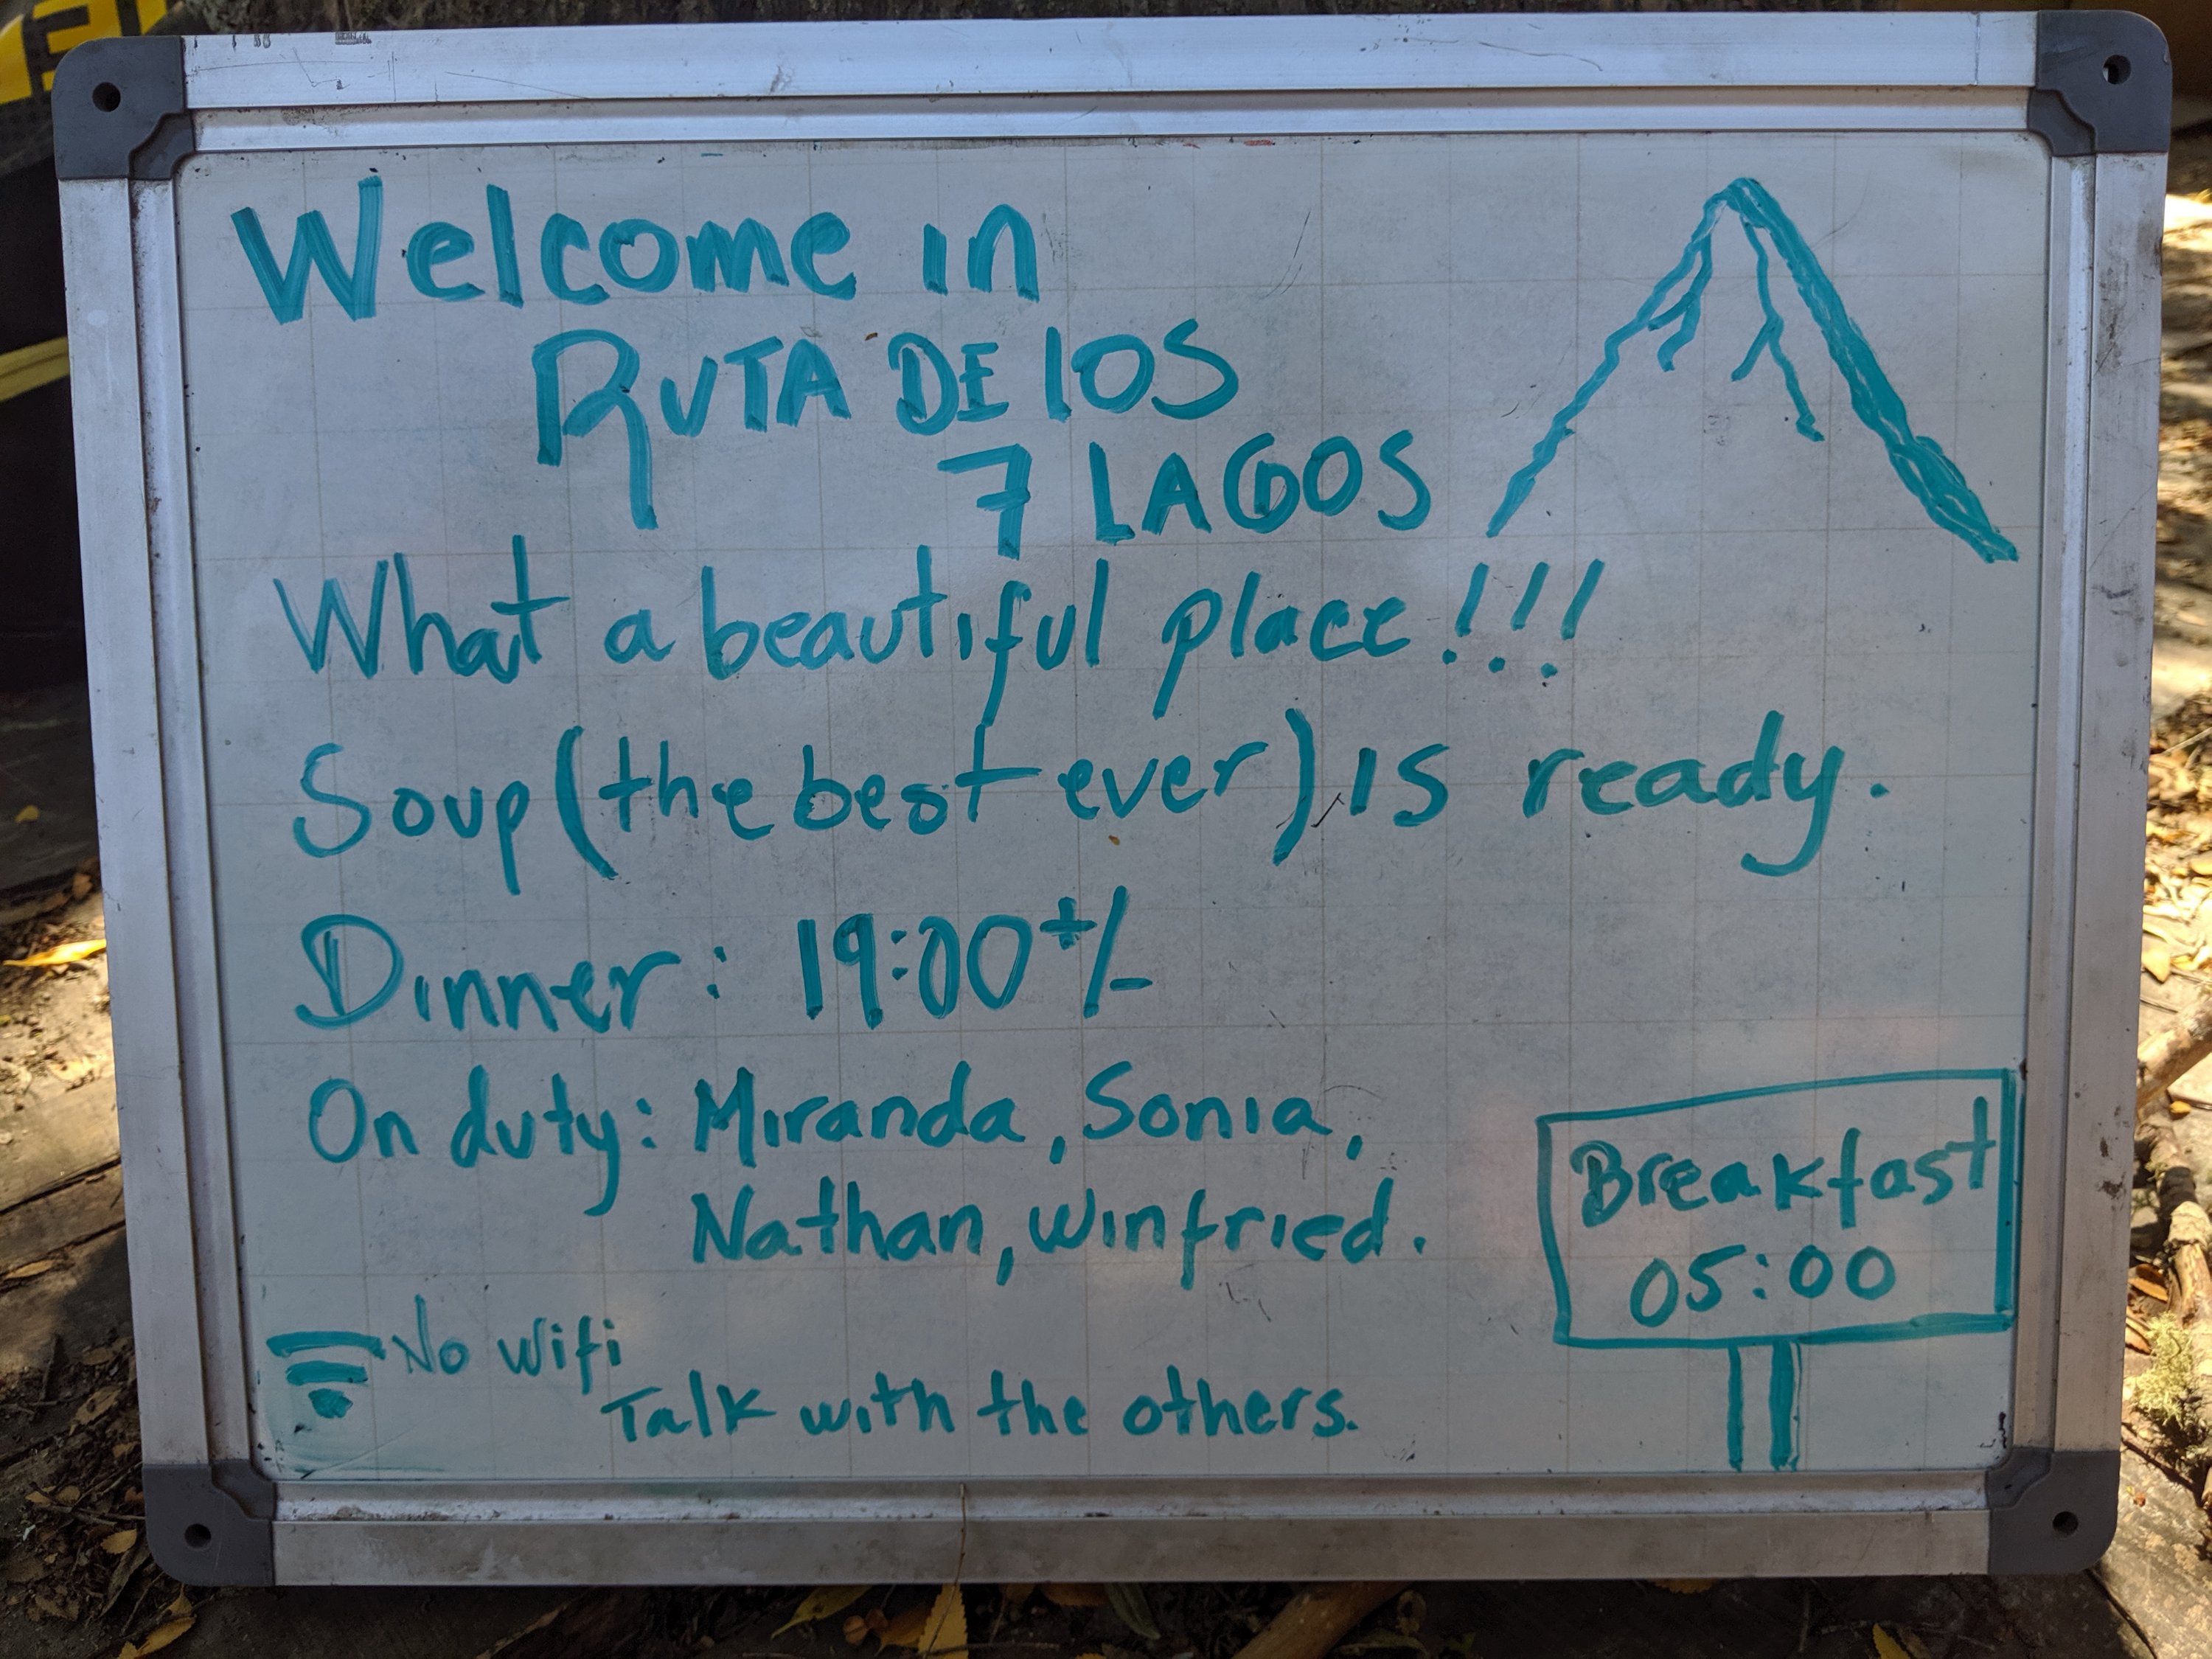 Welcome in
RUTA DE lOS
7 LAGOS
What a beautiful place!!!
Soup (the best ever) is ready.
Dinner: 19:00 +/-
On duty: Miranda, Sonia,
Nathan, Winfried.
Breakfast
05:00
No Wifi
Talk with the others.